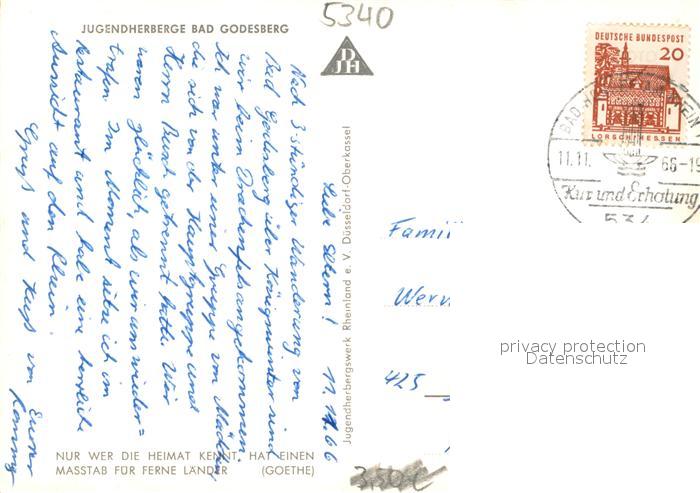 5340
JUGENDHERBERGE BAD GODESBERG
DJH
Liebe Eltern! 11.11.66
Nach 3 stündiger Wanderung von
Bad Godesberg über Königswinter sind
wir beim Drachenfels angekommen.
Ich war unter einer Gruppe von Mädchen,
die sich von der Hauptgruppe und
Herrn Busch getrennt hatte. Wir
waren glücklich, als wir uns wieder=
trafen. Im Moment sitze ich im
Restaurant und habe eine herrliche
Aussicht auf den Rhein.
Gruß und Kuß von Eurer
NUR WER DIE HEIMAT KENNT, HAT EINEN
MASSTAB FÜR FERNE LÄNDER (GOETHE)
Jugendherbergswerk Rheinland e. V. Düsseldorf-Oberkassel
DEUTSCHE BUNDESPOST
20
LORSCH/HESSEN
BAD RHEIN
11.11. 66-19
Kur und Erholung
534
Fami
Wer
425
privacy protection
Datenschutz